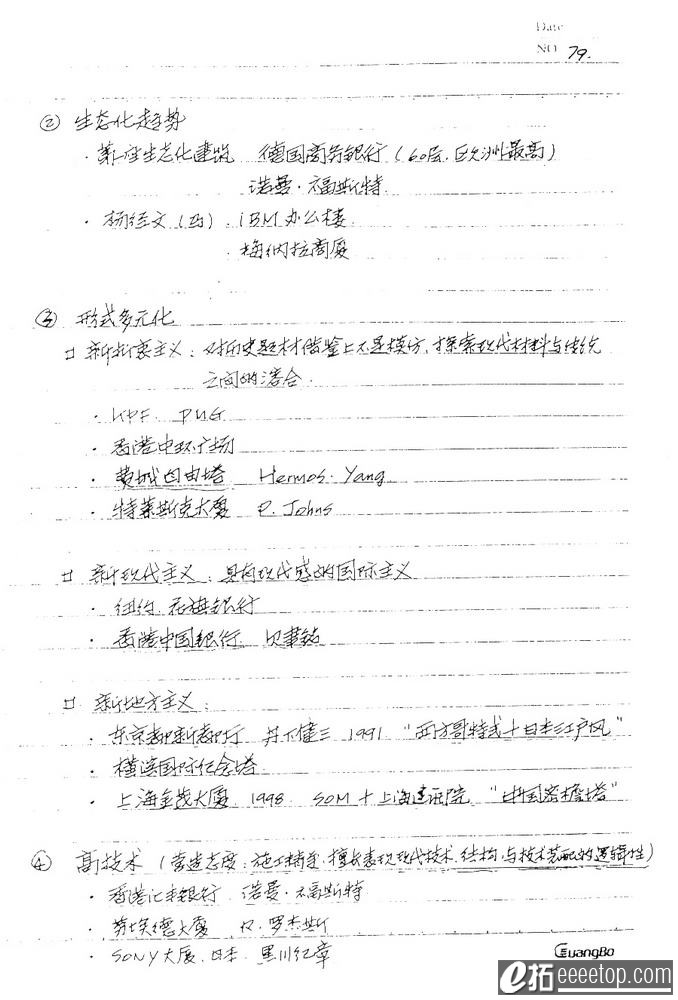 Date
NO 79.
② 生态化走势
· 第一座生态化建筑 德国商务银行(60层.欧洲最高)
诺曼·福斯特
· 杨经文(马). IBM办公楼.
· 梅纳拉商厦
③ 形式多元化
□ 新折衷主义: 对历史题材借鉴上不是模仿.探索现代材料与传统
之间的溶合.
· KPF. PMG
· 香港中环广场
· 费城自由塔 Hermos. Yang
· 特莱斯克大厦 P. Johns
□ 新现代主义: 具有现代感的国际主义
· 纽约 花旗银行
· 香港中国银行. 贝聿铭
□ 新地方主义:
· 东京都新都厅 丹下健三 1991 "西方哥特式+日本江户风"
· 横滨国际纪念塔
· 上海金茂大厦. 1998. SOM + 上海建研院. "中国密檐塔"
④ 高技术(营造态度: 施工精美.擅长表现现代技术.结构.与技术装配的逻辑性)
· 香港汇丰银行. 诺曼·福斯特
· 劳埃德大厦 R. 罗杰斯
· SONY大厦.日本. 黑川纪章
GuangBo
e拓 eeeetop.com